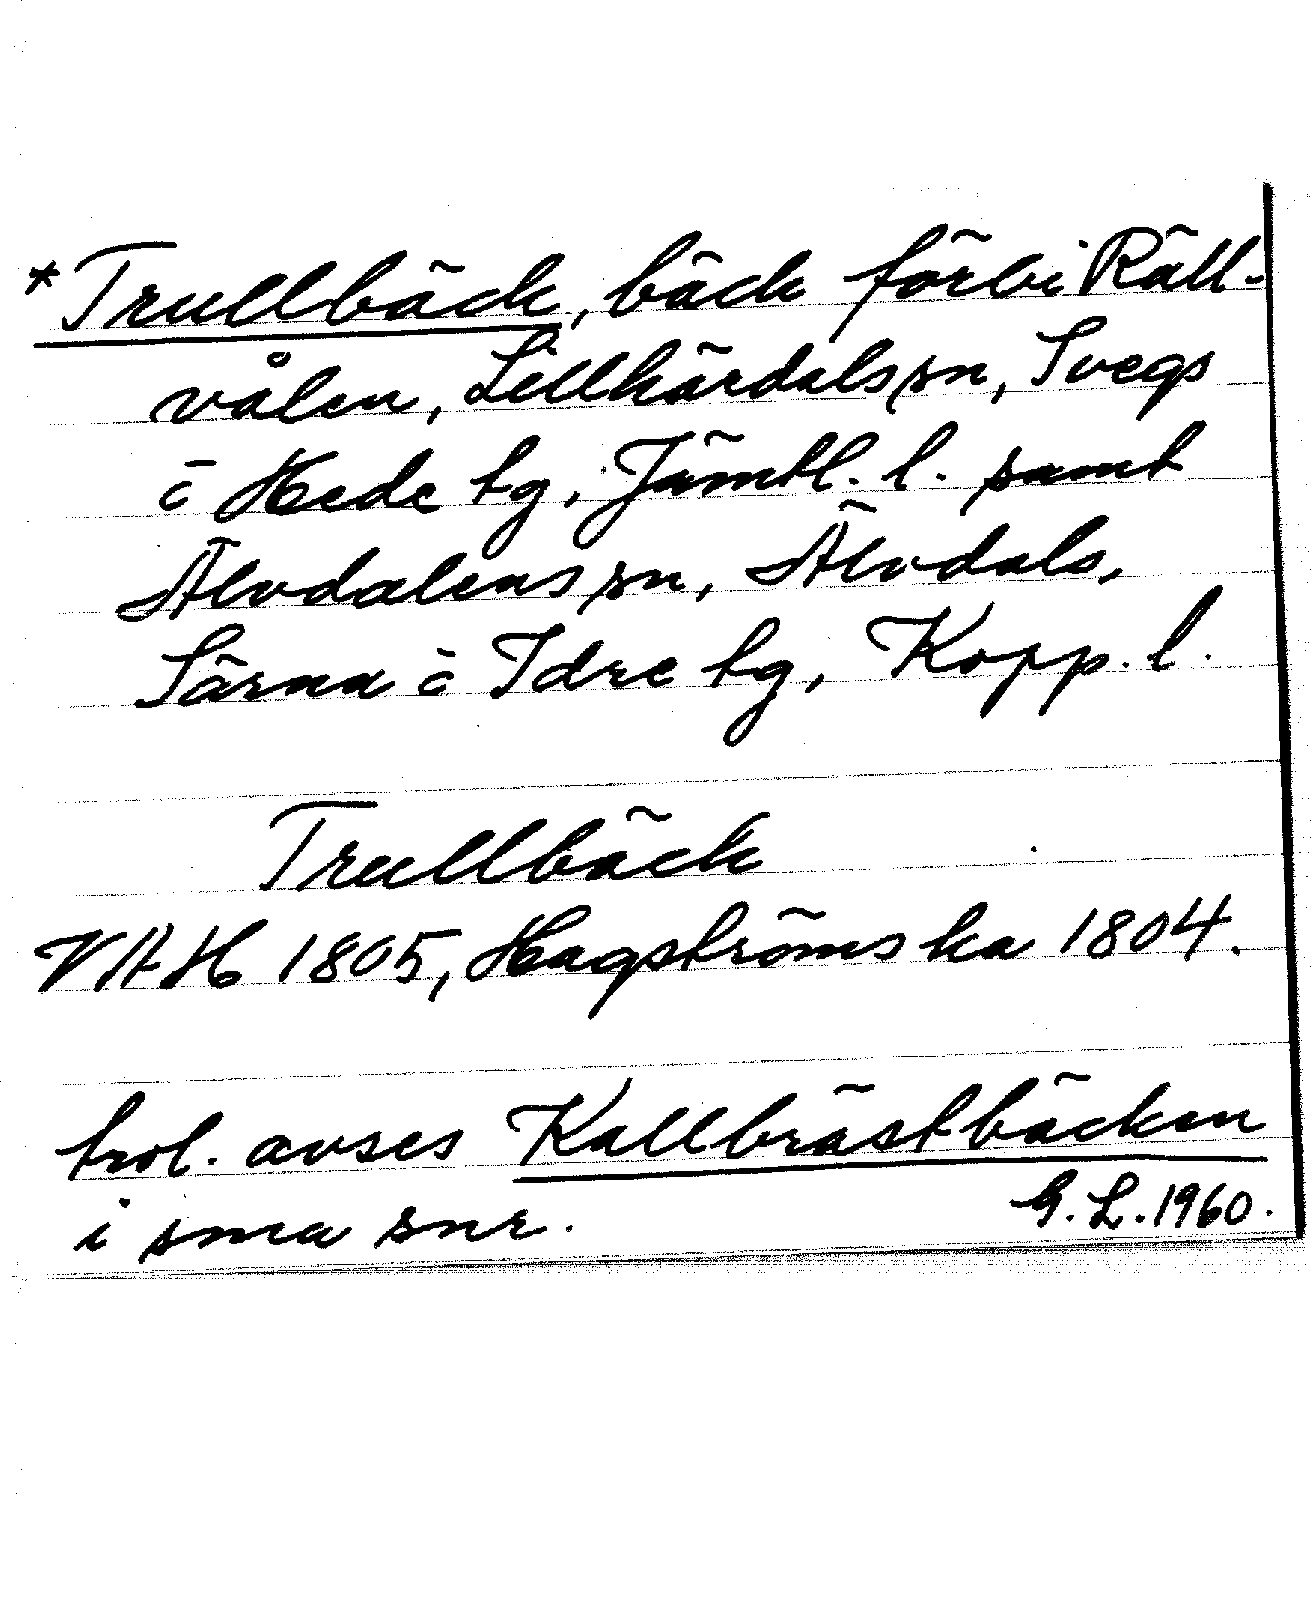 *Trullbäck, bäck förbi Räll-
vålen, Lillhärdals sn, Svegs
o Hede tg, Jämtl. l. samt
Älvdalens sn, Älvdals,
Särna o Idre tg, Kopp. l.
Trullbäck
VAH 1805, Hagströms ka 1804.
trol. avses Kallbrästbäcken
i sma snr.
G. L. 1960.